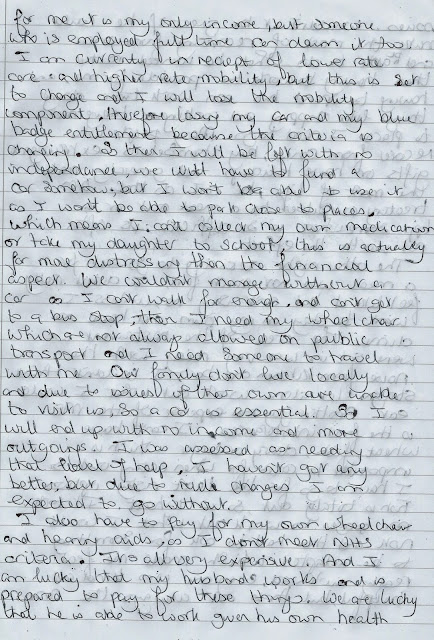 for me it is my only income, but someone
who is employed full time can claim it too.
I am currently in reciept of lower rate
care and higher rate mobility, but this is set
to change and I will lose the mobility
component, therefore losing my car and my blue
badge entitlement because the criteria is
changing. So then I will be left with no
independance, we will have to fund a
car somehow, but I won't be able to use it
as I won't be able to park close to places,
which means I can't collect my own medication
or take my daughter to school, this is actually
far more distressing than the financial
aspect. We couldn't manage without a
car as I can't walk far enough, and can't get
to a bus stop, then I need my wheelchair
which are not always allowed on public
transport and I need someone to travel
with me. Our family don't live locally
and due to issues of their own are unable
to visit us, so a car is essential. So I
will end up with no income and more
outgoings. I was assessed as needing
that level of help, I haven't got any
better, but due to rule changes I am
expected to go without.
I also have to pay for my own wheelchair
and hearing aids, as I don't meet NHS
criteria. It's all very expensive. And I
am lucky that my husband works and is
prepared to pay for these things. We are lucky
that he is able to work given his own health